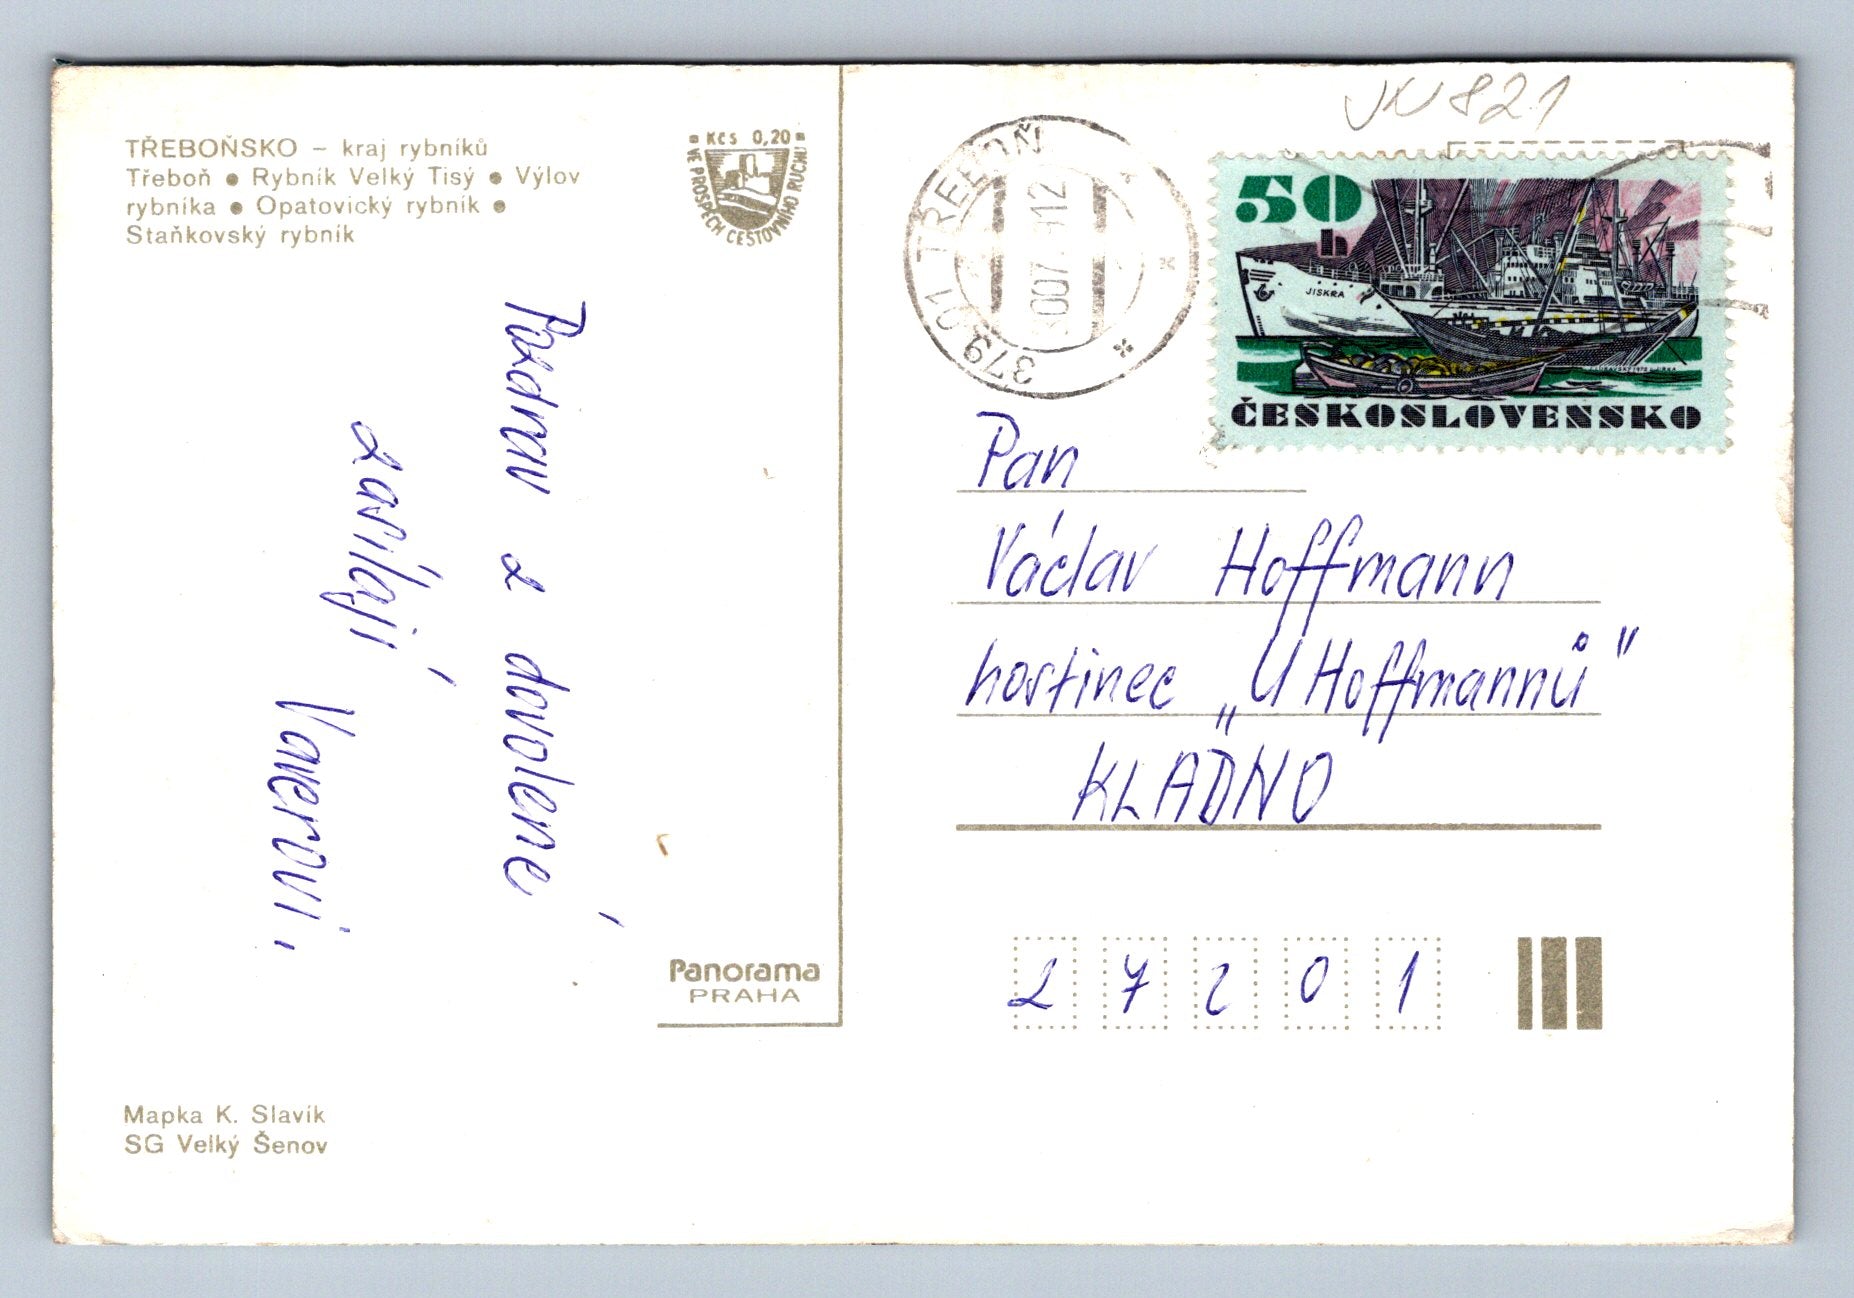 TŘEBOŇSKO – kraj rybníků
Třeboň ● Rybník Velký Tisý ● Výlov
rybníka ● Opatovický rybník ●
Staňkovský rybník
Kčs 0,20
VE PROSPĚCH CESTOVNÍHO RUCHU
Pozdrav z dovolené
zasílají
Vaverovi.
Panorama
PRAHA
Mapka K. Slavík
SG Velký Šenov
821
379 01 TŘEBOŇ
50
h
JISKRA
ČESKOSLOVENSKO
Pan
Václav Hoffmann
hostinec „U Hoffmannů"
KLADNO
27201